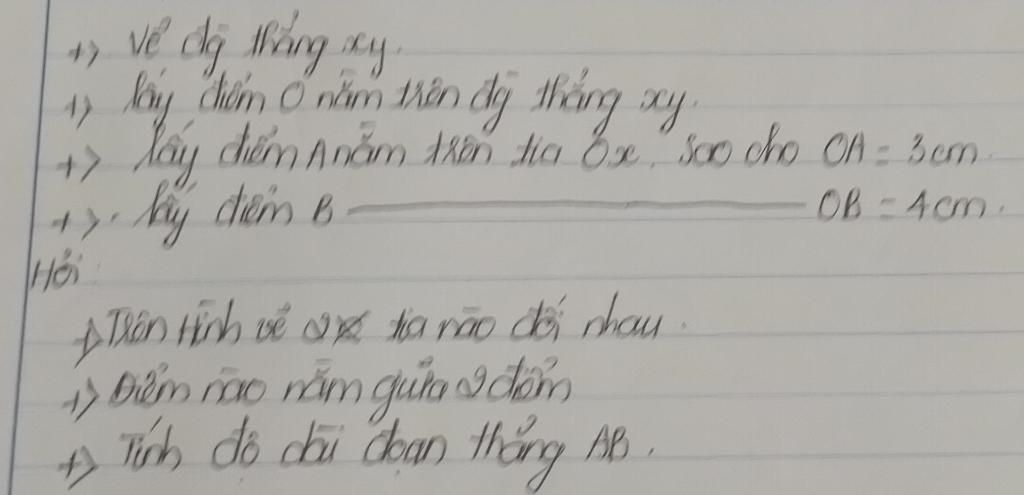 +> Vẽ đg̃ thẳng xy.
+> lấy điểm O nằm trên đg̃ thẳng xy.
+> lấy điểm A nằm trên tia Ox. sao cho OA = 3cm.
+> lấy điểm B ———————— OB = 4cm.
Hỏi:
+> Trên hình vẽ 2 tia nào đối nhau.
+> Điểm nào nằm giữa 2 điểm
+> Tính độ dài đoạn thẳng AB.